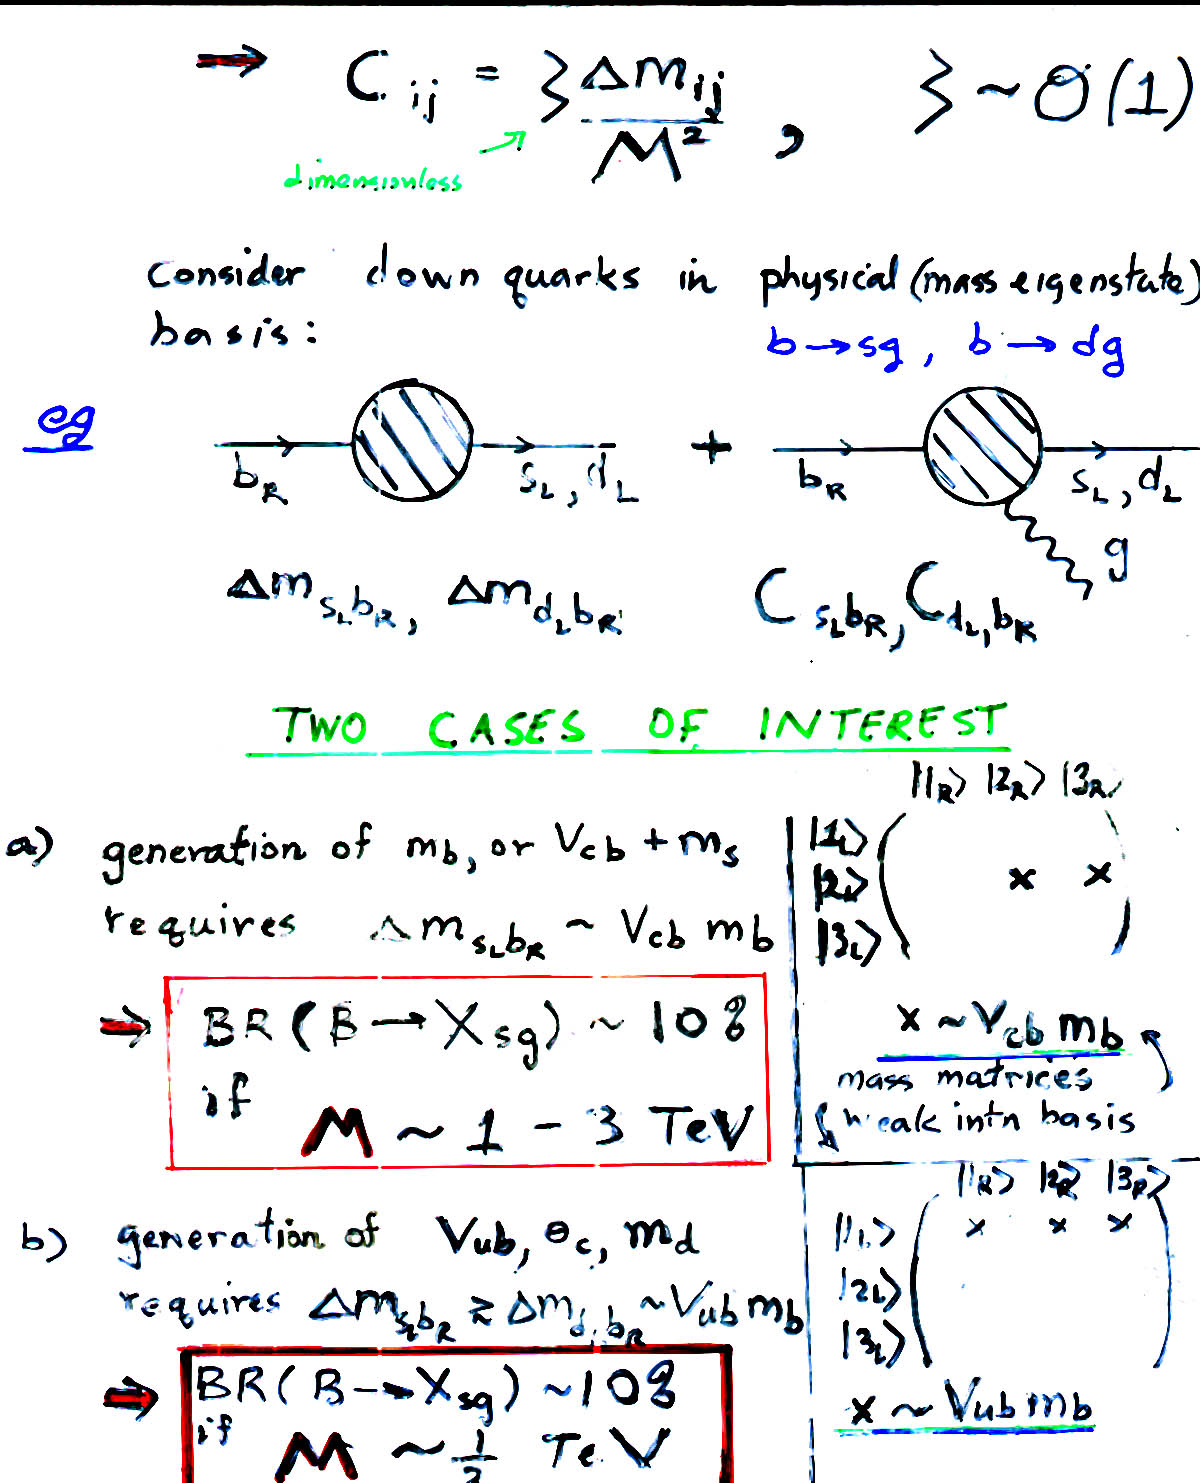 ⇒ C_ij = ξ Δm_ij / M² , ξ ~ O(1)
dimensionless
Consider down quarks in physical (mass eigenstate)
basis:
b → sg, b → dg
eg
b_R s_L, d_L + b_R s_L, d_L
g
Δm_{s_L b_R}, Δm_{d_L b_R} C_{s_L b_R}, C_{d_L, b_R}
TWO CASES OF INTEREST
a) generation of m_b, or V_cb + m_s
requires Δm_{s_L b_R} ~ V_cb m_b
⇒ BR(B → X_sg) ~ 10%
if M ~ 1 - 3 TeV
|1_R> |2_R> |3_R>
|1_L>
|2_L> x x
|3_L>
x ~ V_cb m_b
mass matrices
weak intn basis
b) generation of V_ub, θ_c, m_d
requires Δm_{s_L b_R} ≳ Δm_{d_L b_R} ~ V_ub m_b
⇒ BR(B → X_sg) ~ 10%
if M ~ 1/2 TeV
|1_R> |2_R> |3_R>
|1_L> x x x
|2_L>
|3_L>
x ~ V_ub m_b